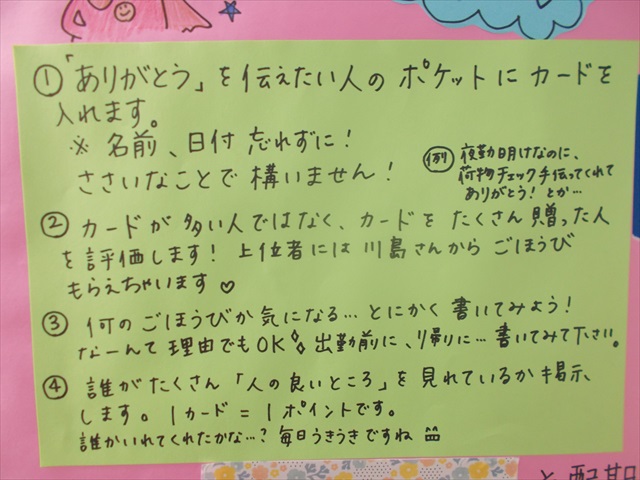 ①「ありがとう」を伝えたい人のポケットにカードを
入れます。
※名前、日付忘れずに！
ささいなことで構いません！
例 夜勤明けなのに、
荷物チェック手伝ってくれて
ありがとう！とか…
②カードが多い人ではなく、カードをたくさん贈った人
を評価します！上位者には川島さんからごほうび
もらえちゃいます♡
③何のごほうびか気になる…とにかく書いてみよう！
なーんて理由でもOK 出勤前に、帰りに…書いてみて下さい。
④誰がたくさん「人の良いところ」を見れているか掲示、
します。1カード＝1ポイントです。
誰かいれてくれたかな…？毎日うきうきですね